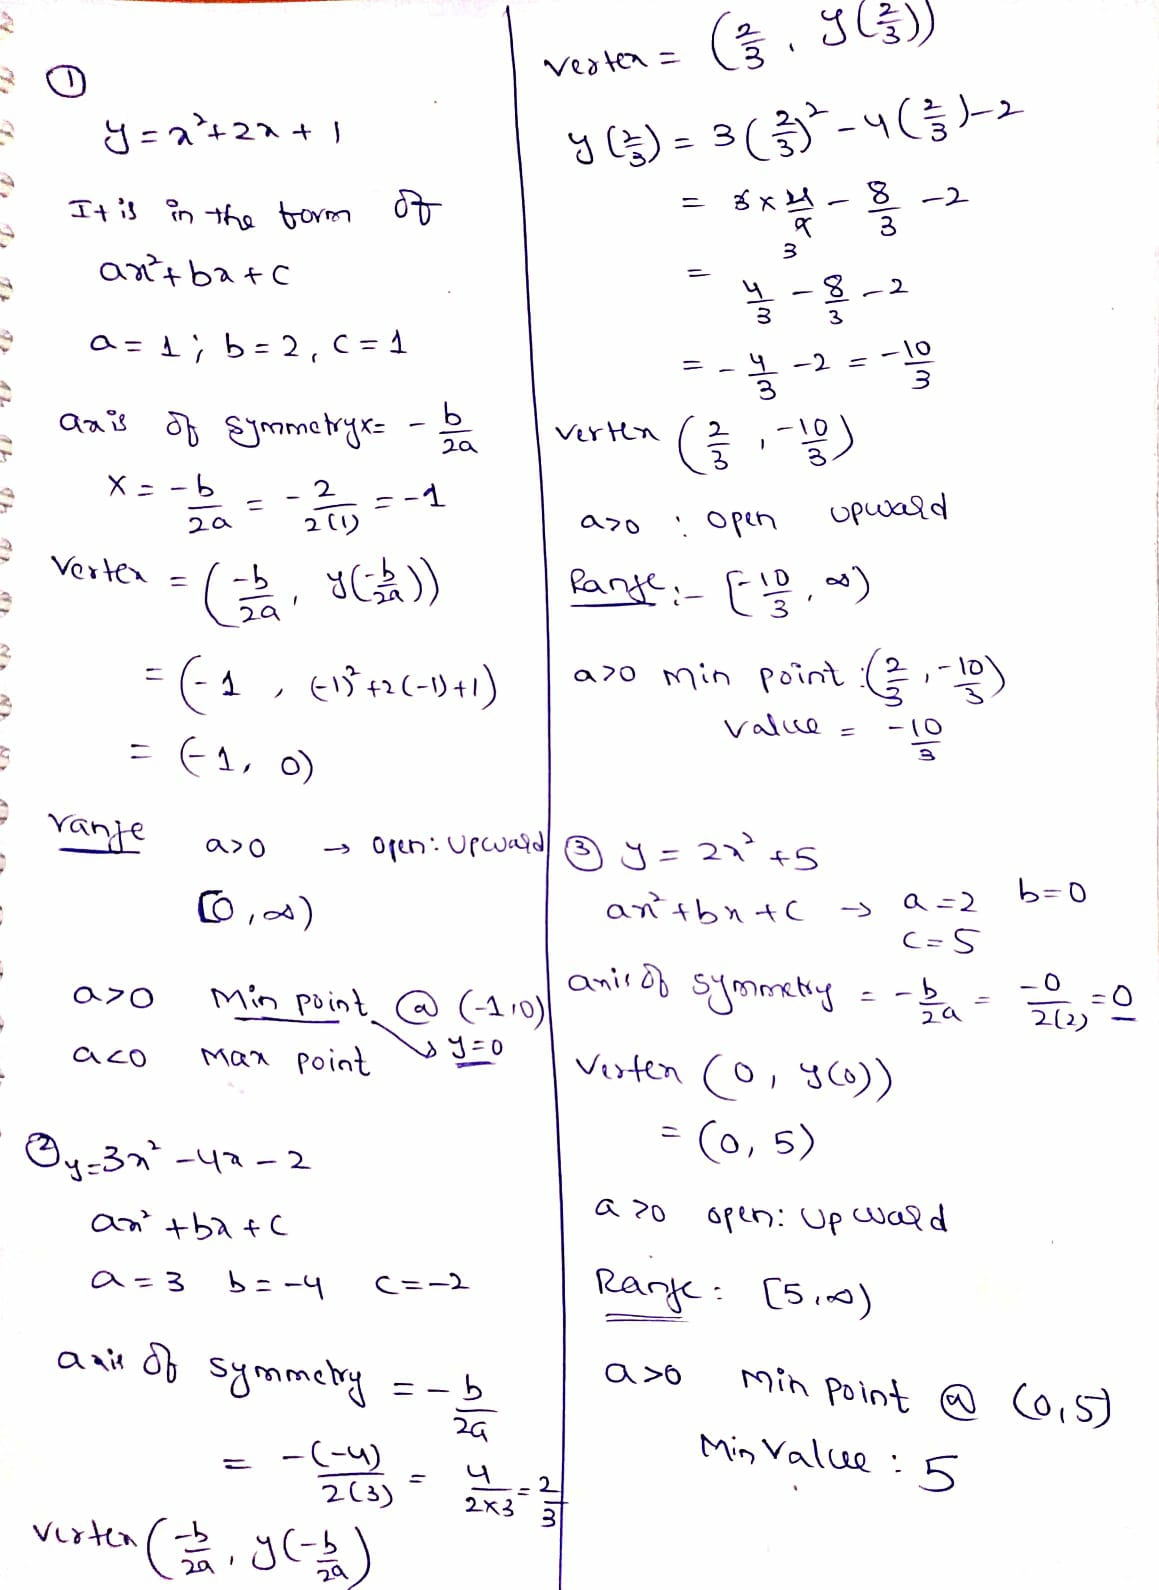 ①
y = x²+2x + 1
It is in the form of
ax²+bx+c
a = 1 ; b = 2, c = 1
axis of symmetry x= -b/2a
x = -b/2a = -2/2(1) = -1
Vertex = (-b/2a, y(-b/2a))
= (-1, (-1)²+2(-1)+1)
= (-1, 0)
range a>0 → open: upward
[0, ∞)
a>0 Min point @ (-1,0)
↘ y=0
a<0 Max point
② y=3x² -4x - 2
ax² +bx+c
a = 3 b = -4 c = -2
axis of symmetry = -b/2a
= -(-4)/2(3) = 4/2×3 = 2/3
vertex (-b/2a, y(-b/2a)
vertex = (2/3, y(2/3))
y(2/3) = 3(2/3)² -4(2/3)-2
= 3 × 4/9 - 8/3 -2
3
= 4/3 - 8/3 -2
= -4/3 -2 = -10/3
vertex (2/3, -10/3)
a>0 : open upward
Range:- [-10/3, ∞)
a>0 min point :(2/3, -10/3)
value = -10/3
③ y = 2x² +5
ax²+bx+c → a=2 b=0
c=5
axis of symmetry = -b/2a = -0/2(2) = 0
Vertex (0, y(0))
= (0, 5)
a>0 open: upward
Range: [5,∞)
a>0 min point @ (0,5)
Min Value : 5